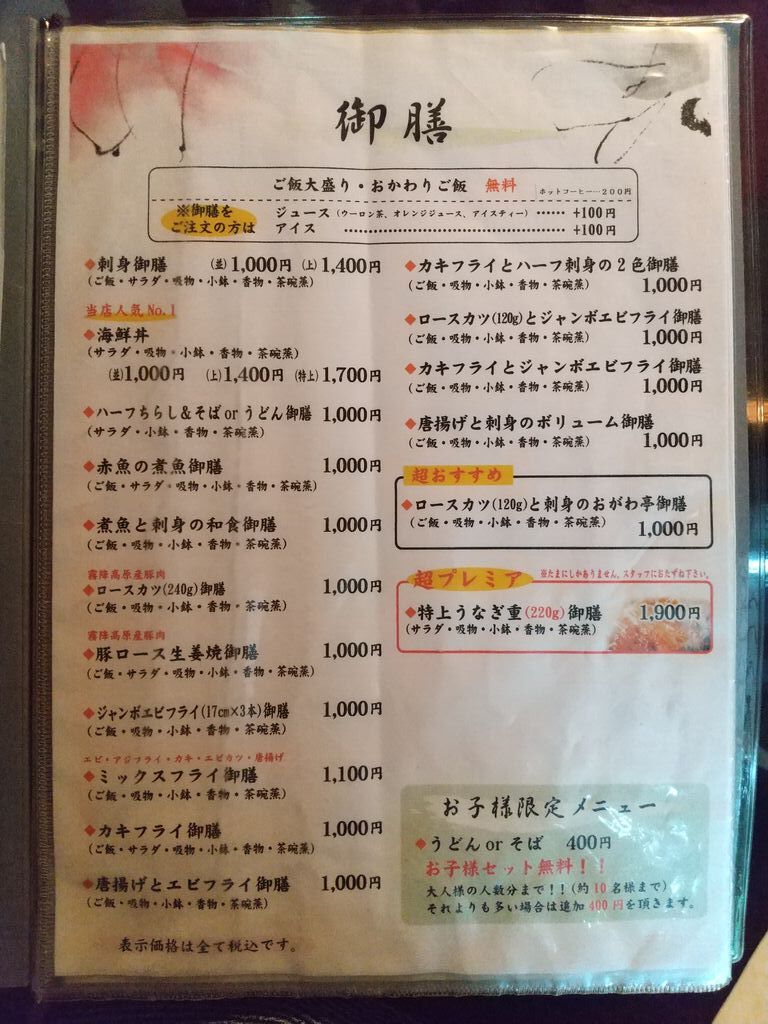 御膳
ご飯大盛り・おかわりご飯 無料 ホットコーヒー…200円
※御膳を
ご注文の方は
ジュース(ウーロン茶、オレンジジュース、アイスティー)……+100円
アイス……………………………………+100円
◆刺身御膳 (並)1,000円 (上)1,400円
(ご飯・サラダ・吸物・小鉢・香物・茶碗蒸)
当店人気No.1
◆海鮮丼
(サラダ・吸物・小鉢・香物・茶碗蒸)
(並)1,000円 (上)1,400円 (特上)1,700円
◆ハーフちらし&そばorうどん御膳 1,000円
(サラダ・小鉢・香物・茶碗蒸)
◆赤魚の煮魚御膳 1,000円
(ご飯・サラダ・吸物・小鉢・香物・茶碗蒸)
◆煮魚と刺身の和食御膳 1,000円
(ご飯・吸物・小鉢・香物・茶碗蒸)
霧降高原産豚肉
◆ロースカツ(240g)御膳 1,000円
(ご飯・吸物・小鉢・香物・茶碗蒸)
霧降高原産豚肉
◆豚ロース生姜焼御膳 1,000円
(ご飯・吸物・小鉢・香物・茶碗蒸)
◆ジャンボエビフライ(17cm×3本)御膳 1,000円
(ご飯・吸物・小鉢・香物・茶碗蒸)
エビ・アジフライ・カキ・エビカツ・唐揚げ
◆ミックスフライ御膳 1,100円
(ご飯・吸物・小鉢・香物・茶碗蒸)
◆カキフライ御膳 1,000円
(ご飯・サラダ・吸物・小鉢・香物・茶碗蒸)
◆唐揚げとエビフライ御膳 1,000円
(ご飯・吸物・小鉢・香物・茶碗蒸)
表示価格は全て税込です。
◆カキフライとハーフ刺身の2色御膳
(ご飯・吸物・小鉢・香物・茶碗蒸) 1,000円
◆ロースカツ(120g)とジャンボエビフライ御膳
(ご飯・吸物・小鉢・香物・茶碗蒸) 1,000円
◆カキフライとジャンボエビフライ御膳
(ご飯・吸物・小鉢・香物・茶碗蒸) 1,000円
◆唐揚げと刺身のボリューム御膳
(ご飯・吸物・小鉢・香物・茶碗蒸) 1,000円
超おすすめ
◆ロースカツ(120g)と刺身のおがわ亭御膳
(ご飯・吸物・小鉢・香物・茶碗蒸) 1,000円
超プレミア ※たまにしかありません。スタッフにおたずね下さい。
◆特上うなぎ重(220g)御膳 1,900円
(サラダ・吸物・小鉢・香物・茶碗蒸)
お子様限定メニュー
◆うどんorそば 400円
お子様セット無料!!
大人様の人数分まで!!(約10名様まで)
それよりも多い場合は追加400円を頂きます。